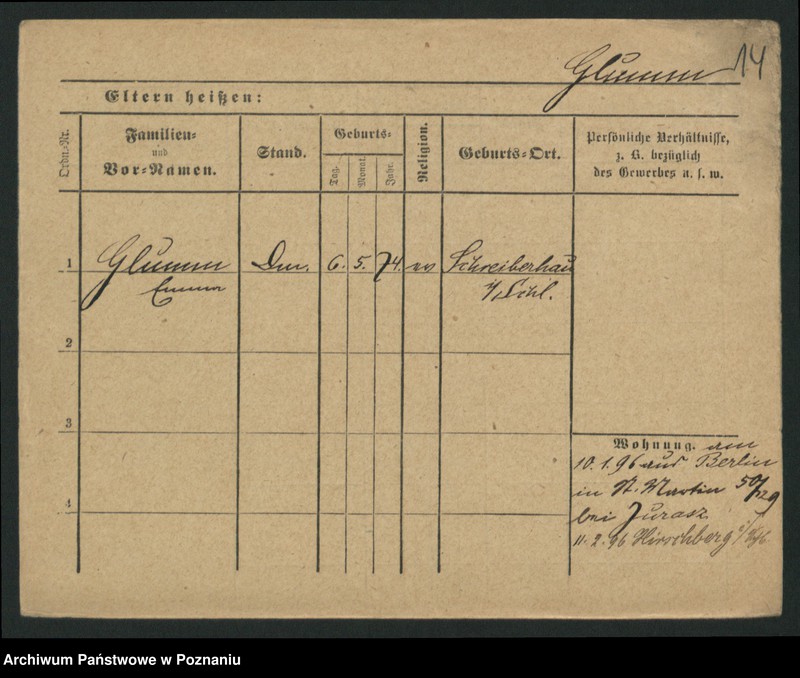 Glumm 14
Eltern heißen:
Ordn.-Nr.
Familien-
und
Vor-Namen.
Stand.
Geburts-
Tag.
Monat.
Jahr.
Religion.
Geburts-Ort.
Persönliche Verhältnisse,
z. B. bezüglich
des Gewerbes u. s. w.
1 Glumm 6. 5. 74. ev Schreiberhau
Emma
2
3
4
Wohnung. am
10.1.96 aus Berlin
in St. Martin
bei Jurasz
11.2.96 Hirschberg
Archiwum Państwowe w Poznaniu